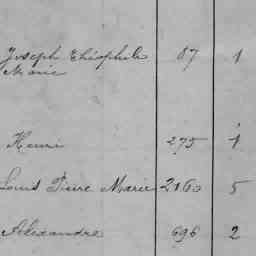 Joseph Théophile 87 1
Marie
Henri 275 1
Louis Pierre Marie 2160 5
Alexandre 696 2